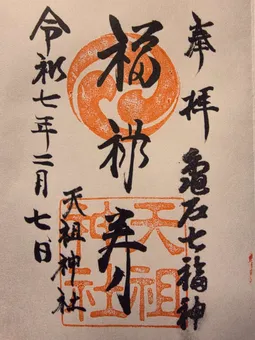 奉拝
龜戸七福神
福禄寿
天祖神社
令和七年二月七日
天祖神社